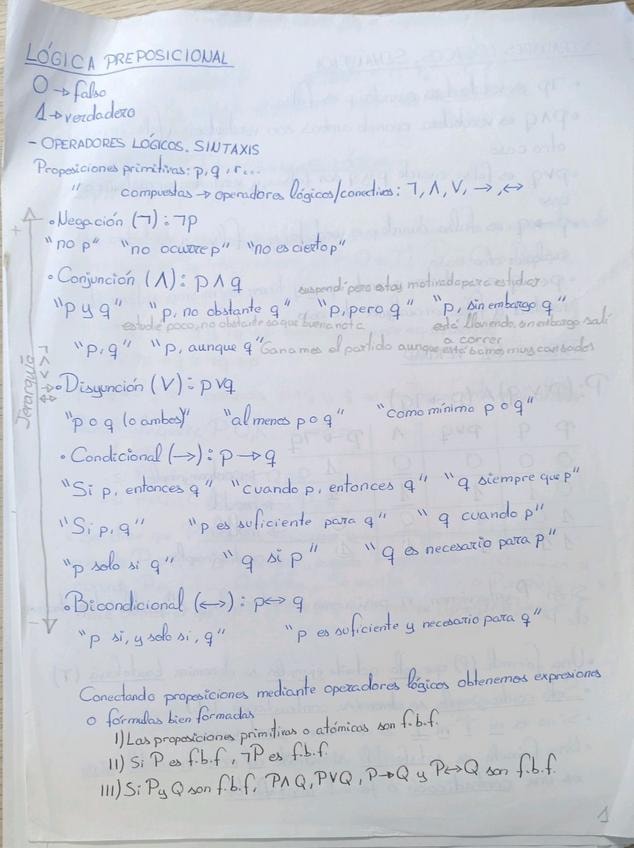 LÓGICA PREPOSICIONAL
0 → falso
1 → verdadero
- OPERADORES LÓGICOS. SINTAXIS
Proposiciones primitivas: p, q, r...
" compuestas → operadores lógicos/conectivas: ¬, ∧, ∨, →, ↔
• Negación (¬): ¬p
"no p" "no ocurre p" "no es cierto p"
• Conjunción (∧): p ∧ q
suspendí pero estoy motivado para estudiar
"p y q" "p, no obstante q" "p, pero q" "p, sin embargo q"
estudié poco, no obstante saqué buena nota está lloviendo, sin embargo salí a correr
"p, q" "p, aunque q" Ganamos el partido aunque estábamos muy cansados
• Disyunción (∨): p∨q
"p o q (o ambos)" "al menos p o q" "como mínimo p o q"
• Condicional (→): p → q
"Si p, entonces q" "cuando p, entonces q" "q siempre que p"
"Si p, q" "p es suficiente para q" "q cuando p"
"p solo si q" "q si p" "q es necesario para p"
• Bicondicional (↔): p ↔ q
"p si, y solo si, q" "p es suficiente y necesario para q"
+
Jerarquía
¬ ∧ ∨ → ↔
-
Conectando proposiciones mediante operadores lógicos obtenemos expresiones
o fórmulas bien formadas
I) Las proposiciones primitivas o atómicas son f.b.f.
II) Si P es f.b.f, ¬P es f.b.f.
III) Si P y Q son f.b.f, P∧Q, P∨Q, P→Q y P↔Q son f.b.f.
1